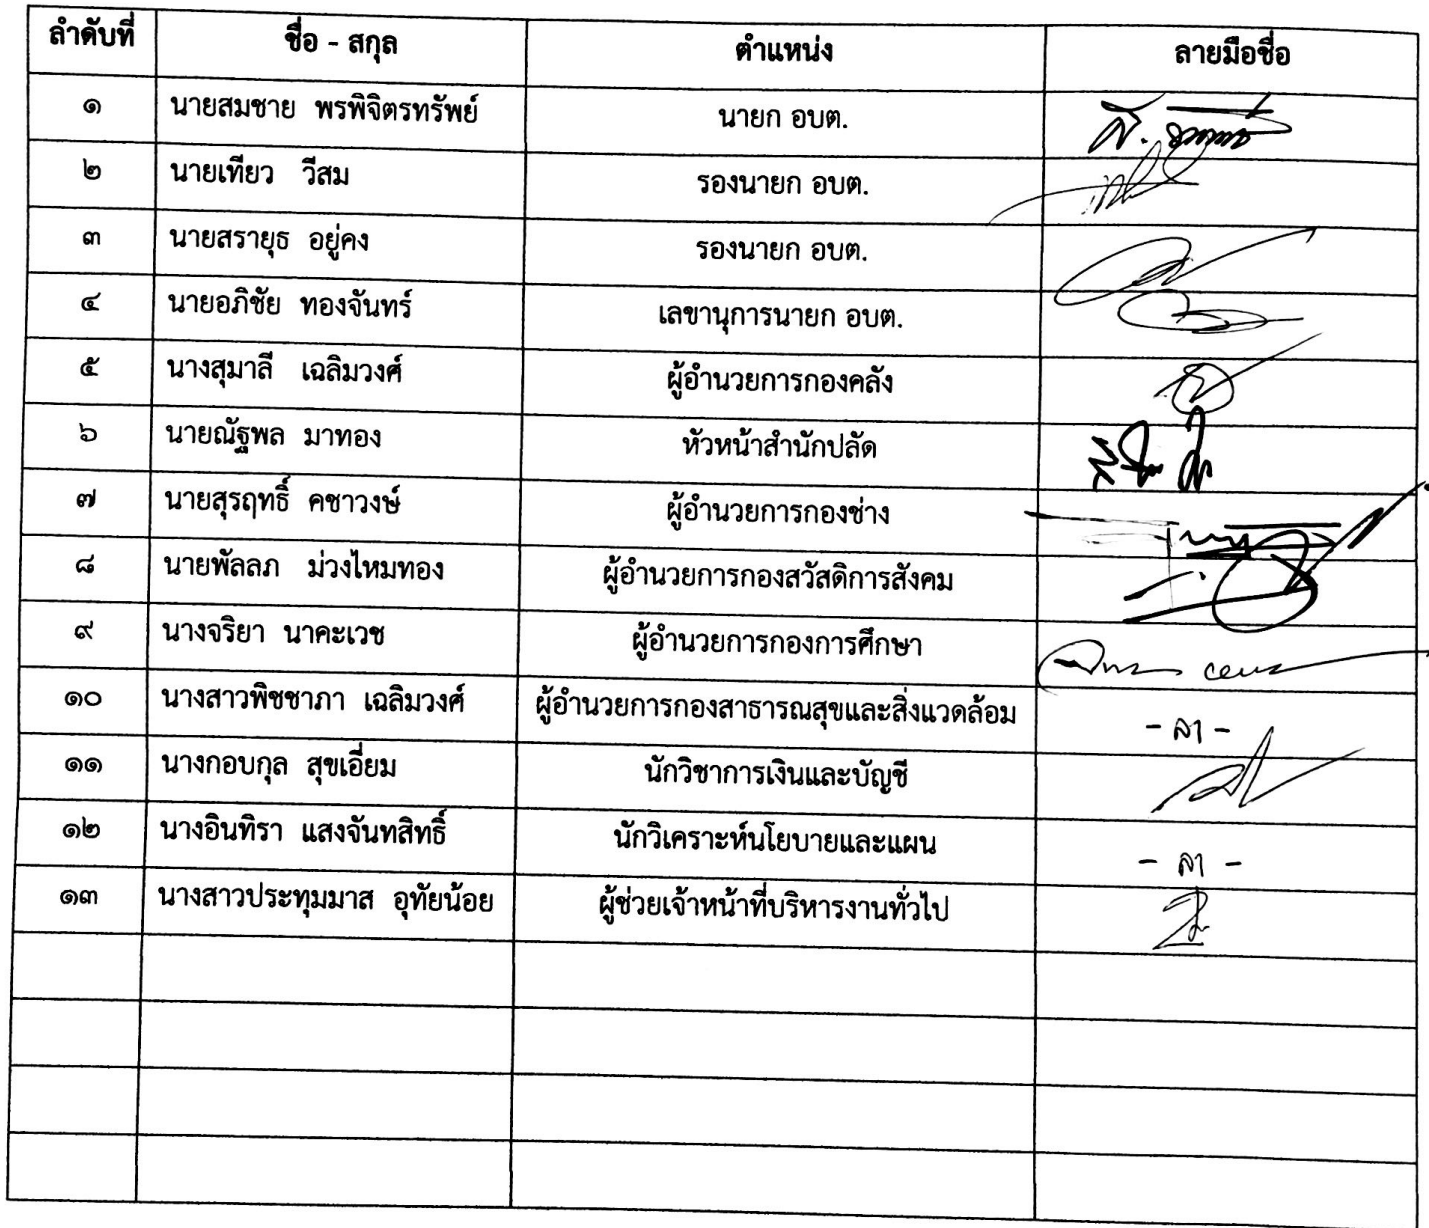 ลำดับที่ ชื่อ - สกุล ตำแหน่ง ลายมือชื่อ
๑ นายสมชาย พรพิจิตรทรัพย์ นายก อบต.
๒ นายเทียว วีสม รองนายก อบต.
๓ นายสรายุธ อยู่คง รองนายก อบต.
๔ นายอภิชัย ทองจันทร์ เลขานุการนายก อบต.
๕ นางสุมาลี เฉลิมวงศ์ ผู้อำนวยการกองคลัง
๖ นายณัฐพล มาทอง หัวหน้าสำนักปลัด
๗ นายสุรฤทธิ์ คชาวงษ์ ผู้อำนวยการกองช่าง
๘ นายพัลลภ ม่วงไหมทอง ผู้อำนวยการกองสวัสดิการสังคม
๙ นางจริยา นาคะเวช ผู้อำนวยการกองการศึกษา
๑๐ นางสาวพิชชาภา เฉลิมวงศ์ ผู้อำนวยการกองสาธารณสุขและสิ่งแวดล้อม - ลา -
๑๑ นางกอบกุล สุขเอี่ยม นักวิชาการเงินและบัญชี
๑๒ นางอินทิรา แสงจันทสิทธิ์ นักวิเคราะห์นโยบายและแผน - ลา -
๑๓ นางสาวประทุมมาส อุทัยน้อย ผู้ช่วยเจ้าหน้าที่บริหารงานทั่วไป